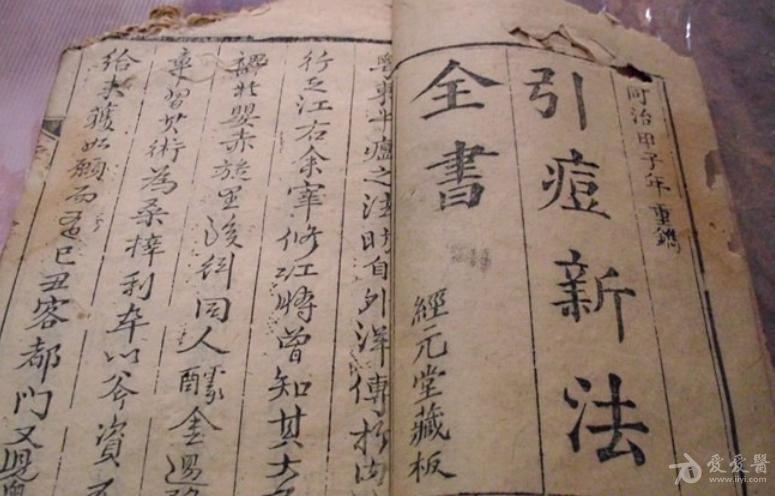 同治甲子年重鐫
引痘新法
全書
經元堂藏板
之法時自外洋傳於內
行之江右余宰修江時曾知其大
嬰赤旋里後糾同人醵金
習其術為桑梓利卒以資
給未獲如願而己丑客都門又
爱爱醫
www.iiyi.com